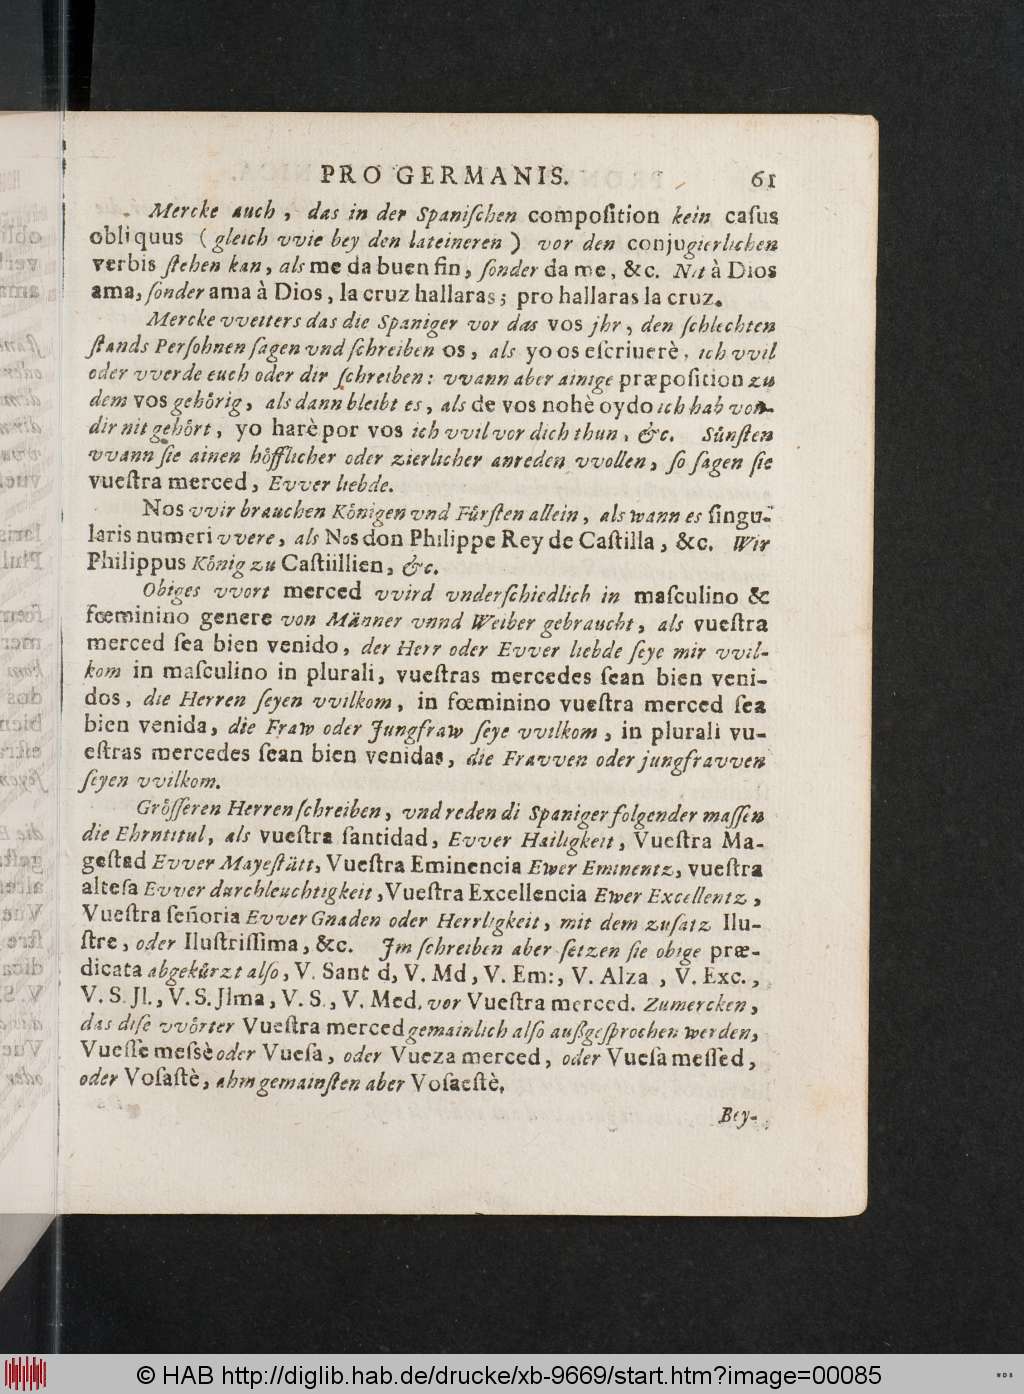 PRO GERMANIS. 61
Mercke auch, das in der Spaniſchen compoſition kein caſus
obliquus (gleich vvie bey den lateineren) vor den conjugierlichen
verbis ſtehen kan, als me da buen fin, ſonder da me, &c. Nit à Dios
ama, ſonder ama à Dios, la cruz hallaras; pro hallaras la cruz.
Mercke vveiters das die Spaniger vor das vos jhr, den ſchlechten
ſtands Perſohnen ſagen vnd ſchreiben os, als yo os eſcriuerè, ich vvil
oder vverde euch oder dir ſchreiben: vvann aber ainige præpoſition zu
dem vos gehoͤrig, als dann bleibt es, als de vos nohè oydo ich hab von
dir nit gehoͤrt, yo harè por vos ich vvil vor dich thun, &c. Suͤnſten
vvann ſie ainen hoͤfflicher oder zierlicher anreden vvollen, ſo ſagen ſie
vueſtra merced, Evver liebde.
Nos vvir brauchen Koͤnigen vnd Fuͤrſten allein, als wann es ſingu-
laris numeri vvere, als Nos don Philippe Rey de Caſtilla, &c. Wir
Philippus Koͤnig zu Caſtiillien, &c.
Obiges vvort merced vvird vnderſchiedlich in maſculino &
fœminino genere von Maͤnner vnnd Weiber gebraucht, als vueſtra
merced ſea bien venido, der Herr oder Evver liebde ſeye mir vvil-
kom in maſculino in plurali, vueſtras mercedes ſean bien veni-
dos, die Herren ſeyen vvilkom, in fœminino vueſtra merced ſea
bien venida, die Fraw oder Jungfraw ſeye vvilkom, in plurali vu-
eſtras mercedes ſean bien venidas, die Fravven oder jungfravven
ſeyen vvilkom.
Groͤſſeren Herren ſchreiben, vnd reden di Spaniger folgender maſſen
die Ehrntitul, als vueſtra ſantidad, Evver Hailigkeit, Vueſtra Ma-
geſtad Evver Mayeſtaͤtt, Vueſtra Eminencia Ewer Eminentz, vueſtra
alteſa Evver durchleuchtigkeit, Vueſtra Excellencia Ewer Excellentz,
Vueſtra ſeñoria Evver Gnaden oder Herrligkeit, mit dem zuſatz Ilu-
ſtre, oder Iluſtriſſima, &c. Jm ſchreiben aber ſetzen ſie obige præ-
dicata abgekuͤrzt alſo, V. Sant d, V. Md, V. Em:, V. Alza, V. Exc.,
V. S. Jl., V. S. Jlma, V. S., V. Med. vor Vueſtra merced. Zumercken,
das diſe vvoͤrter Vueſtra merced gemainlich alſo außgeſprochen werden,
Vueſſe meſsè oder Vueſa, oder Vueza merced, oder Vueſa meſſed,
oder Voſaſtè, ahm gemainſten aber Voſaeſtè.
Bey-
© HAB http://diglib.hab.de/drucke/xb-9669/start.htm?image=00085